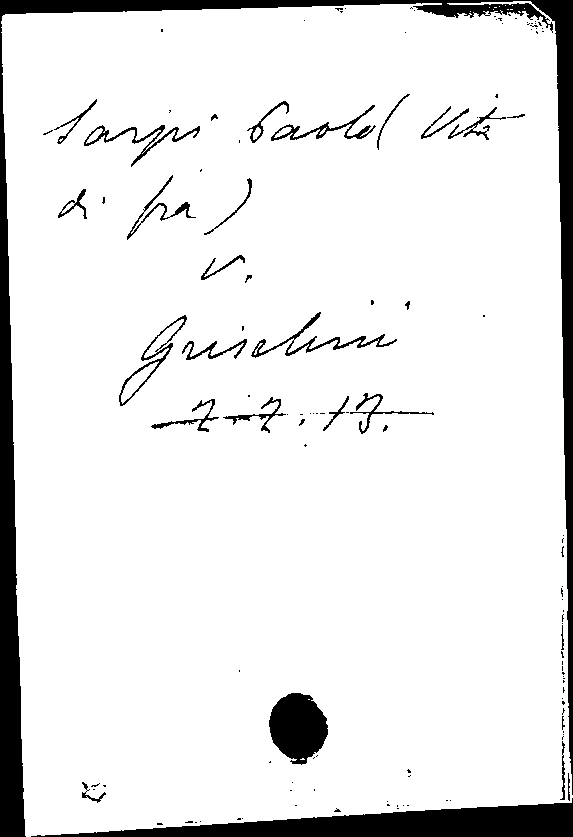 Sarpi Paolo (Vita
di fra)
v.
Griselini
Z.Z.13.